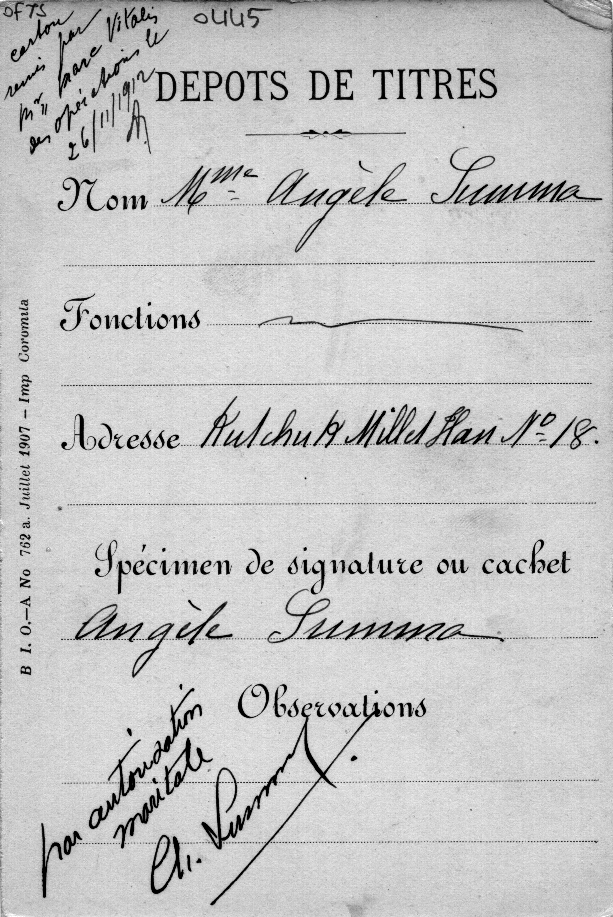 OFTS
0445
carton
remis par
Mr Marc Vitalis
des opérations le
26/11/1912
DEPOTS DE TITRES
Nom Mme Angèle Summa
Fonctions
Adresse Kutchuk Millet Han No 18.
Spécimen de signature ou cachet
Angèle Summa
Observations
par autorisation
maritale
Ch. Summa
B I. O.—A No 762 a. Juillet 1907 — Imp Coromula